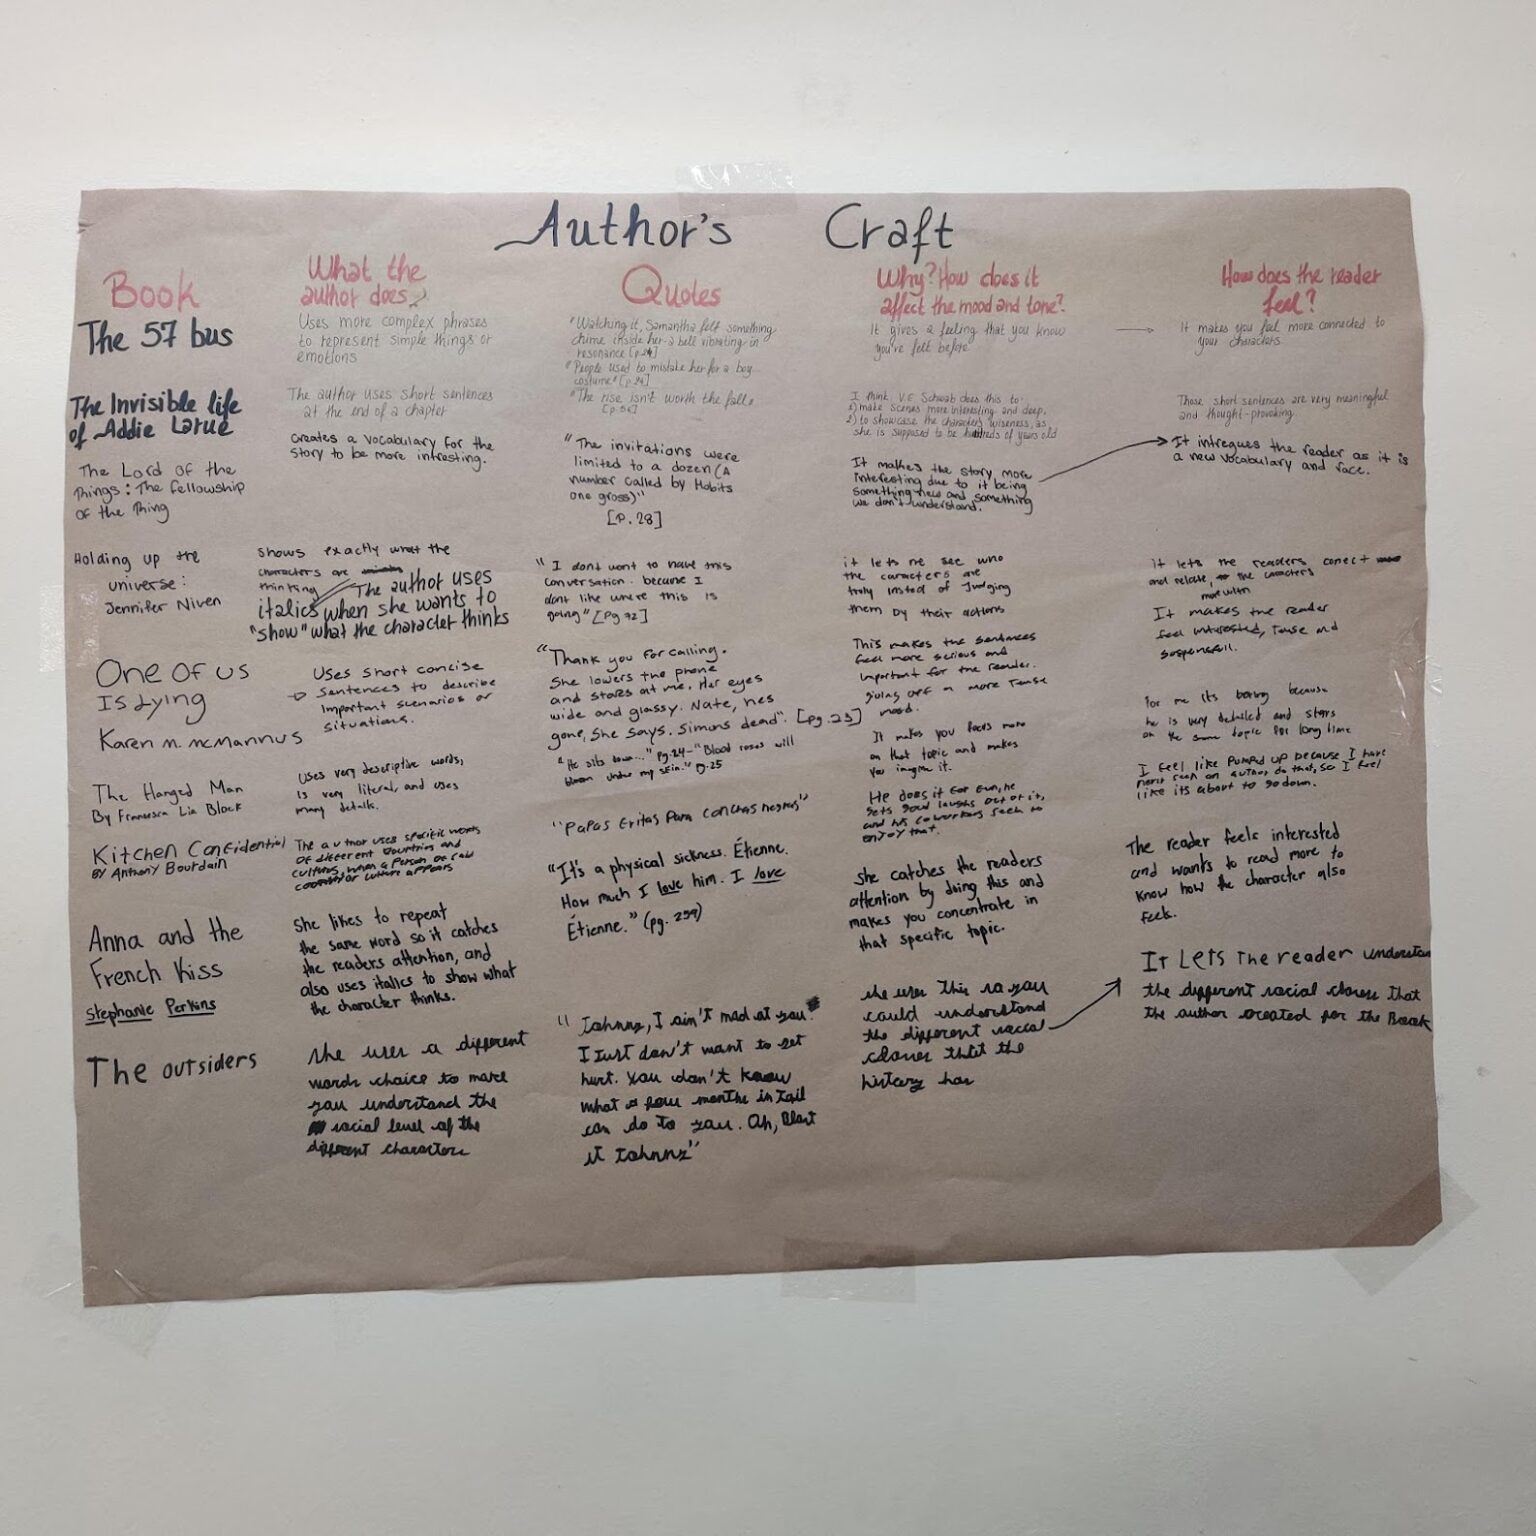 Author's Craft
Book
What the
author does?
Quotes
Why? How does it
affect the mood and tone?
How does the reader
feel?
The 57 bus
Uses more complex phrases
to represent simple things or
emotions
"Watching it, Samantha felt something
chime inside her-a bell vibrating in
resonance
"People used to mistake her for a boy
costume"
It gives a feeling that you know
you've felt before
It makes you feel more connected to
your characters
The Invisible life
of Addie Larue
The author uses short sentences
at the end of a chapter
"The rise isn't worth the fall"
I think V.E Schwab does this to:
1) make scenes more interesting and deep.
2) to showcase the characters wiseness, as
she is supposed to be hundreds of years old
Those short sentences are very meaningful
and thought-provoking.
The Lord of the
Things: The fellowship
of the Thing
creates a vocabulary for the
story to be more intresting.
"The invitations were
limited to a dozen (A
number called by Hobits
one gross)"
[P. 28]
It makes the story more
interesting due to it being
something new and something
we don't understand.
It intregues the reader as it is
a new vocabulary and race.
Holding up the
universe:
Jennifer Niven
shows exactly what the
characters are
thinking
The author uses
italics when she wants to
"show" what the character thinks
"I dont want to have this
conversation. because I
dont like where this is
going" [Pg 72]
it lets me see who
the caracters are
truly insted of Judging
them by their actions
it lets the readers conect
and relate, to the caracters
more with
One of us
Is Lying
Karen M. McMannus
Uses short concise
sentences to describe
important scenarios or
situations.
"Thank you for calling.
She lowers the phone
and stares at me. Her eyes
wide and glassy. Nate, hes
gone, she says. Simons dead". [pg. 23]
This makes the sentences
feel more serious and
important for the reader.
giving off a more tense
mood.
It makes the reader
feel interested, Tense and
suspensfull.
The Hanged Man
By Francesca Lia Block
Uses very descriptive words,
is very literal, and uses
many details.
"He sits down..." pg.24-"Blood roses will
bloom under my skin." pg.25
It makes you focus more
on that topic and makes
you imagine it.
For me its boring because
he is very detailed and stays
on the same topic for long time
Kitchen Confidential
By Anthony Bourdain
The author uses specific words
of different countries and
cultures, when a person of said
country or culture appears
"Papas Fritas Para Conchas negras"
He does it for fun, he
gets good laughs out of it,
and his coworkers seem to
enjoy that.
I feel like Pumped up because I have
never seen an author do that, so I feel
like its about to go down.
Anna and the
French Kiss
Stephanie Perkins
She likes to repeat
the same word so it catches
the readers attention, and
also uses italics to show what
the character thinks.
"It's a physical sickness. Étienne.
How much I love him. I love
Étienne." (pg. 259)
She catches the readers
attention by doing this and
makes you concentrate in
that specific topic.
The reader feels interested
and wants to read more to
know how the character also
feels.
The outsiders
she uses a different
words choice to make
you understand the
social level of the
different characters
"Johnny, I ain't mad at you.
I just don't want to get
hurt. you don't know
what a few months in jail
can do to you. Oh, Blast
it Johnny"
she uses this so you
could understand
the different social
clases that the
history has
It Lets The reader understan
the different social clases that
the author created for the Book